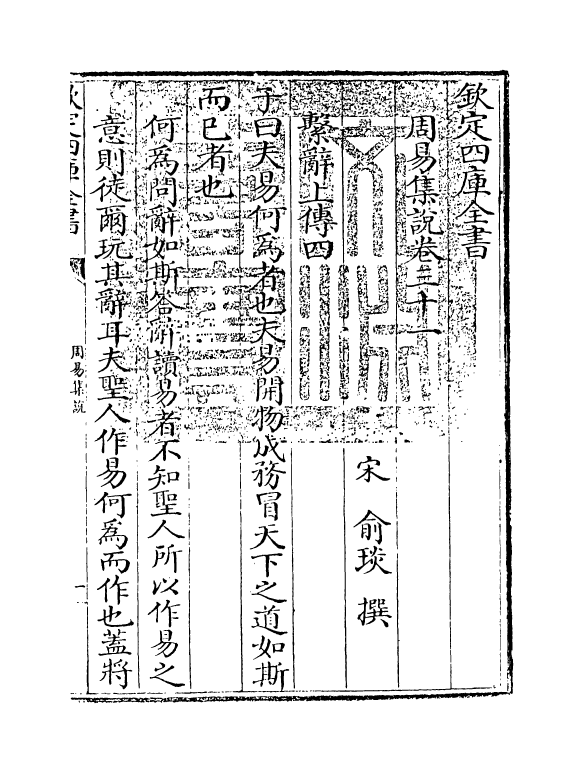 欽定四庫全書
周易集說卷三十一
宋 俞琰 撰
繫辭上傳四
子曰夫易何為者也夫易開物成務冒天下之道如斯
而已者也
何為問辭如斯答所讀易者不知聖人所以作易之
意則徒爾玩其辭耳夫聖人作易何為而作也蓋將
欽定四庫全書
周易集說
一